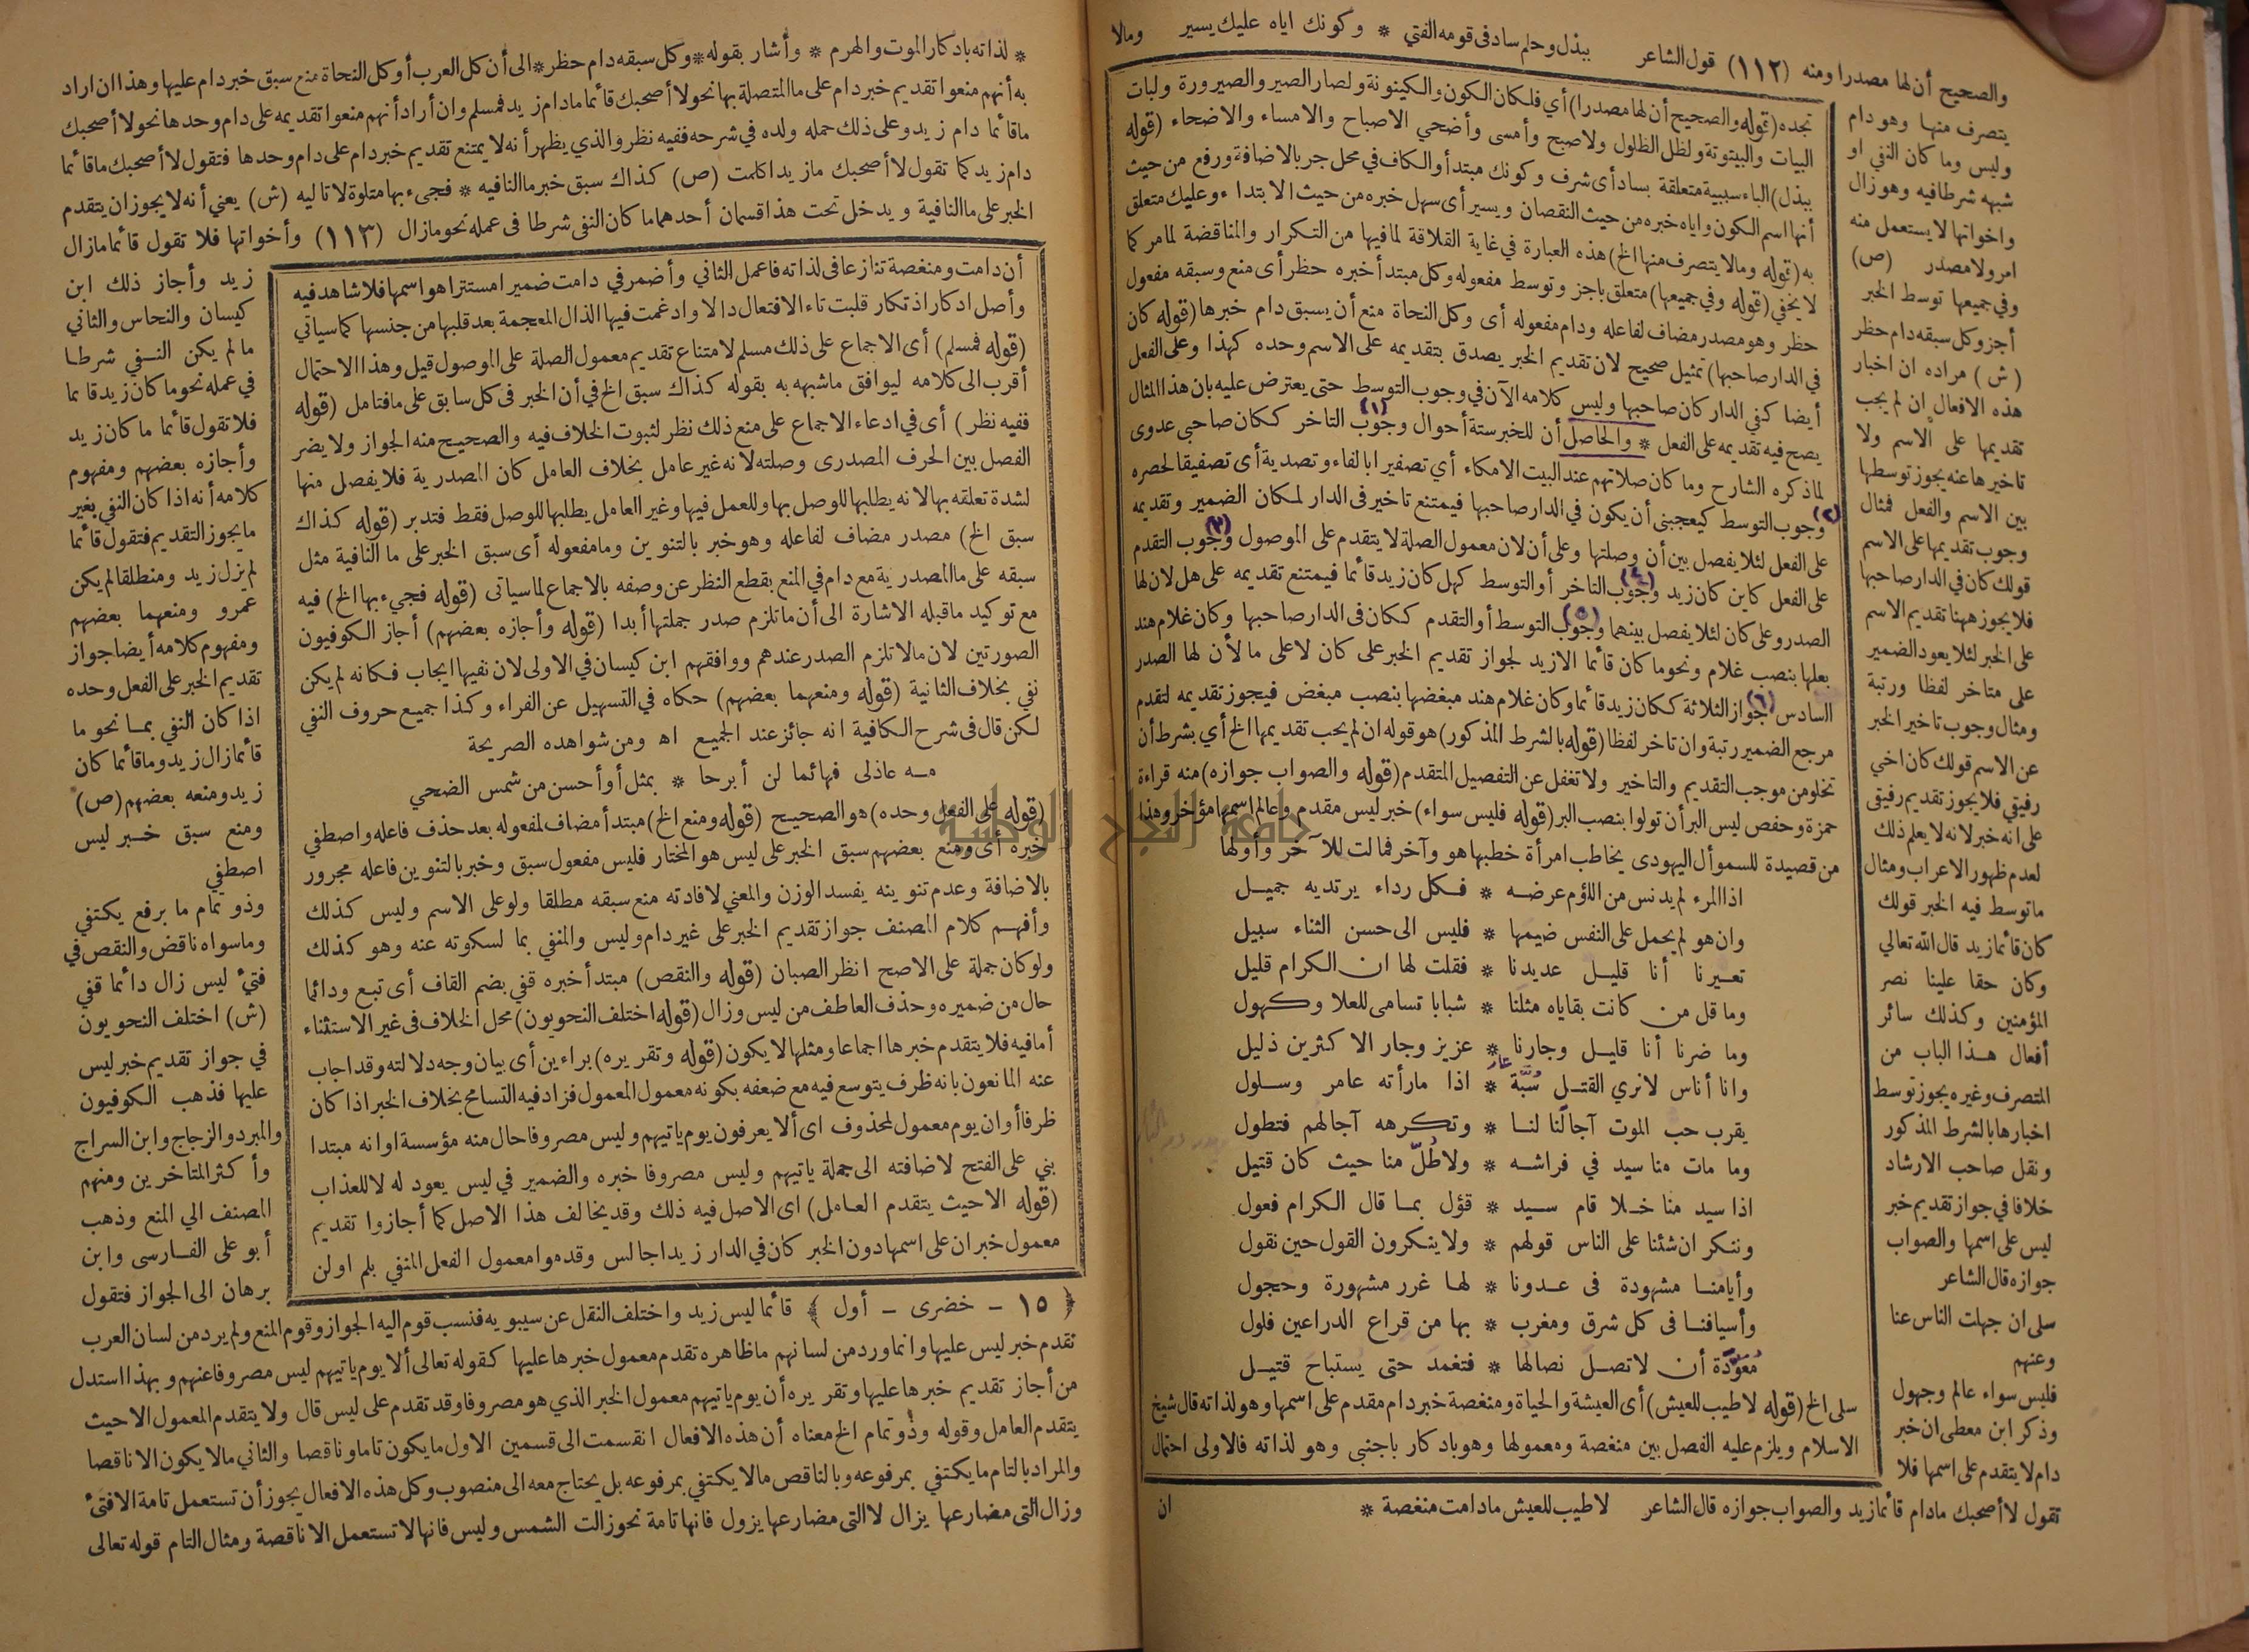 والصحيح أن لها مصدرا ومنه (١١٢) قول الشاعر ببذل وحلم ساد فى قومه الفتي * وكونك اياه عليك يسير ومالا
يتصرف منها وهو دام
وليس وما كان النفي او
شبهه شرطا فيه وهو زال
واخواتها لا يستعمل منه
امر ولا مصدر (ص)
وفي جميعها توسط الخبر
أجز وكل سبقه دام حظر
(ش) مراده ان اخبار
هذه الافعال ان لم يجب
تقديمها على الاسم ولا
تاخيرها عنه يجوز توسطها
بين الاسم والفعل فمثال
وجوب تقديمها على الاسم
قولك كان في الدار صاحبها
فلا يجوز ههنا تقديم الاسم
على الخبر لئلا يعود الضمير
على متاخر لفظا ورتبة
ومثال وجوب تاخير الخبر
عن الاسم قولك كان اخي
رفيقي فلا يجوز تقديم رفيقي
على انه خبر لانه لا يعلم ذلك
لعدم ظهور الاعراب ومثال
ما توسط فيه الخبر قولك
كان قائما زيد قال الله تعالي
وكان حقا علينا نصر
المؤمنين وكذلك سائر
أفعال هذا الباب من
المتصرف وغيره يجوز توسط
اخبارها بالشرط المذكور
ونقل صاحب الارشاد
خلافا في جواز تقديم خبر
ليس على اسمها والصواب
جوازه قال الشاعر
سلى ان جهلت الناس عنا
وعنهم
فليس سواء عالم وجهول
وذكر ابن معطى ان خبر
دام لا يتقدم على اسمها فلا
تقول لا أصحبك مادام قائما زيد والصواب جوازه قال الشاعر لا طيب للعيش مادامت منغصة *
ان
تجده (قوله والصحيح أن لها مصدرا) أي فلكان الكون والكينونة ولصار الصير والصيرورة ولبات
البيات والبيتوتة ولظل الظلول ولاصبح وأمسى وأضحي الاصباح والامساء والاضحاء (قوله
ببذل) الباء سببية متعلقة بساد أى شرف وكونك مبتدأ والكاف في محل جر بالاضافة ورفع من حيث
أنها اسم الكون واياه خبره من حيث النقصان ويسير أى سهل خبره من حيث الابتداء وعليك متعلق
به (قوله ومالا يتصرف منها الخ) هذه العبارة في غاية القلاقة لما فيها من التكرار والمناقضة لما مر كما
لا يخفي (قوله وفي جميعها) متعلق باجز وتوسط مفعوله وكل مبتدأ خبره حظر أى منع وسبقه مفعول
حظر وهو مصدر مضاف لفاعله ودام مفعوله أى وكل النحاة منع أن يسبق دام خبرها (قوله كان
في الدار صاحبها) تمثيل صحيح لان تقديم الخبر يصدق بتقديمه على الاسم وحده كهذا وعلى الفعل
أيضا كفي الدار كان صاحبها وليس كلامه الآن في وجوب التوسط حتى يعترض عليه بان هذا المثال
يصح فيه تقديمه على الفعل * والحاصل أن للخبر ستة أحوال (١) وجوب التاخر ككان صاحبي عدوى
لما ذكره الشارح وما كان صلاتهم عند البيت الامكاء أي تصفيرا بالفاء وتصدية أى تصفيقا لحصره
(٢) وجوب التوسط كيعجبني أن يكون في الدار صاحبها فيمتنع تاخير فى الدار لمكان الضمير وتقديمه
على الفعل لئلا يفصل بين أن وصلتها وعلى أن لان معمول الصلة لا يتقدم على الموصول (٣) وجوب التقدم
على الفعل كاين كان زيد (٤) وجوب التاخر أو التوسط كهل كان زيد قائما فيمتنع تقديمه على هل لان لها
الصدر وعلى كان لئلا يفصل بينهما (٥) وجوب التوسط أو التقدم ككان فى الدار صاحبها وكان غلام هند
بعلها بنصب غلام ونحو ما كان قائما الا زيد لجواز تقديم الخبر على كان لا على ما لأن لها الصدر
السادس (٦) جواز الثلاثة ككان زيد قائما وكان غلام هند مبغضها بنصب مبغض فيجوز تقديمه لتقدم
مرجع الضمير رتبة وان تاخر لفظا (قوله بالشرط المذكور) هو قوله ان لم يحب تقديمها الخ أي بشرط أن
تخلو من موجب التقديم والتاخير ولا تغفل عن التفصيل المتقدم (قوله والصواب جوازه) منه قراءة
حمزة وحفص ليس البر أن تولوا بنصب البر (قوله فليس سواء) خبر ليس مقدم وعالم اسمها مؤخر وهذا
من قصيدة للسموأل اليهودى يخاطب امرأة خطبها هو وآخر فمالت للآخر وأولها
اذا المرء لم يدنس من اللؤم عرضه * فكل رداء يرتديه جميل
وان هو لم يحمل على النفس ضيمها * فليس الى حسن الثناء سبيل
تعيرنا أنا قليل عديدنا * فقلت لها ان الكرام قليل
وما قل من كانت بقاياه مثلنا * شبابا تسامى للعلا وكهول
وما ضرنا أنا قليل وجارنا * عزيز وجار الاكثرين ذليل
وانا أناس لا نري القتل سُبَّة * اذا ما رأته عامر وسلول
عار
يقرب حب الموت آجالنا لنا * وتكرهه آجالهم فتطول
وما مات منا سيد في فراشه * ولا طُلّ منا حيث كان قتيل
اذا سيد منا خلا قام سيد * قؤل بما قال الكرام فعول
وننكر ان شئنا على الناس قولهم * ولا ينكرون القول حين نقول
وأيامنا مشهودة فى عدونا * لها غرر مشهورة وحجول
وأسيافنا فى كل شرق ومغرب * بها من قراع الدراعين فلول
مُعَوَّدة أن لا تصل نصالها * فتغمد حتى يستباح قتيل
سلى الخ (قوله لا طيب للعيش) أى العيشة والحياة ومنغصة خبر دام مقدم على اسمها وهو لذاته قال شيخ
الاسلام ويلزم عليه الفصل بين منغصة ومعمولها وهو بادكار باجنبى وهو لذاته فالاولى احتمال
* لذاته بادكار الموت والهرم * وأشار بقوله * وكل سبقه دام حظر * الى أن كل العرب أو كل النحاة منع سبق خبر دام عليها وهذا ان اراد
به أنهم منعوا تقديم خبر دام على ما المتصلة بها نحو لا أصحبك قائما مادام زيد فمسلم وان أراد أنهم منعوا تقديمه على دام وحدها نحو لا أصحبك
ما قائما دام زيد وعلى ذلك حمله ولده في شرحه ففيه نظر والذي يظهر أنه لا يمتنع تقديم خبر دام على دام وحدها فتقول لا أصحبك ما قائما
دام زيد كما تقول لا أصحبك ما زيدا كلمت (ص) كذاك سبق خبر ما النافيه * فجىء بها متلوة لا تاليه (ش) يعني أنه لا يجوز ان يتقدم
الخبر على ما النافية ويدخل تحت هذا قسمان أحدهما ما كان النفى شرطا فى عمله نحو مازال (١١٣) وأخواتها فلا تقول قائما مازال
زيد وأجاز ذلك ابن
كيسان والنحاس والثاني
ما لم يكن النفي شرطا
في عمله نحو ما كان زيد قائما
فلا تقول قائما ما كان زيد
وأجازه بعضهم ومفهوم
كلامه أنه اذا كان النفي بغير
ما يجوز التقديم فتقول قائما
لم يزل زيد ومنطلقا لم يكن
عمرو ومنعهما بعضهم
ومفهوم كلامه أيضا جواز
تقديم الخبر على الفعل وحده
اذا كان النفي بما نحو ما
قائما زال زيد وما قائما كان
زيد ومنعه بعضهم (ص)
ومنع سبق خبر ليس
اصطفي
وذو تمام ما برفع يكتفي
وما سواه ناقص والنقص في
فتئ ليس زال دائما قفي
(ش) اختلف النحويون
في جواز تقديم خبر ليس
عليها فذهب الكوفيون
والمبرد والزجاج وابن السراج
وأكثر المتاخرين ومنهم
المصنف الي المنع وذهب
أبو على الفارسى وابن
برهان الى الجواز فتقول
أن دامت ومنغصة تنازعا فى لذاته فاعمل الثاني وأضمر في دامت ضميرا مستترا هو اسمها فلا شاهد فيه
وأصل ادكار اذتكار قلبت تاء الافتعال دالا وادغمت فيها الذال المعجمة بعد قلبها من جنسها كما سياتي
(قوله فمسلم) أى الاجماع على ذلك مسلم لامتناع تقديم معمول الصلة على الموصول قيل وهذا الاحتمال
أقرب الى كلامه ليوافق ما شبهه به بقوله كذاك سبق الخ في أن الخبر فى كل سابق على ما فتامل (قوله
ففيه نظر) أى في ادعاء الاجماع على منع ذلك نظر لثبوت الخلاف فيه والصحيح منه الجواز ولا يضر
الفصل بين الحرف المصدرى وصلته لانه غير عامل بخلاف العامل كان المصدرية فلا يفصل منها
لشدة تعلقه بها لانه يطلبها للوصل بها وللعمل فيها وغير العامل يطلبها للوصل فقط فتدبر (قوله كذاك
سبق الخ) مصدر مضاف لفاعله وهو خبر بالتنوين وما مفعوله أى سبق الخبر على ما النافية مثل
سبقه على ما المصدرية مع دام في المنع بقطع النظر عن وصفه بالاجماع لما سياتى (قوله فجيء بها الخ) فيه
مع توكيد ما قبله الاشارة الى أن ما تلزم صدر جملتها أبدا (قوله وأجازه بعضهم) أجاز الكوفيون
الصورتين لان ما لا تلزم الصدر عندهم ووافقهم ابن كيسان في الاولى لان نفيها ايجاب فكانه لم يكن
نفي بخلاف الثانية (قوله ومنعهما بعضهم) حكاه في التسهيل عن الفراء وكذا جميع حروف النفي
لكن قال فى شرح الكافية انه جائز عند الجميع اه ومن شواهده الصريحة
مه عاذلى فهائما لن أبرحا * بمثل أو أحسن من شمس الضحي
(قوله على الفعل وحده) هو الصحيح (قوله ومنع الخ) مبتدأ مضاف لمفعوله بعد حذف فاعله واصطفي
خبره أى ومنع بعضهم سبق الخبر على ليس هو المختار فليس مفعول سبق وخبر بالتنوين فاعله مجرور
بالاضافة وعدم تنوينه يفسد الوزن والمعني لافادته منع سبقه مطلقا ولو على الاسم وليس كذلك
وأفهم كلام المصنف جواز تقديم الخبر على غير دام وليس والمنفي بما لسكوته عنه وهو كذلك
ولو كان جملة على الاصح انظر الصبان (قوله والنقص) مبتدأ خبره قفي بضم القاف أى تبع ودائما
حال من ضميره وحذف العاطف من ليس وزال (قوله اختلف النحويون) محل الخلاف فى غير الاستثناء
أما فيه فلا يتقدم خبرها اجماعا ومثلها لا يكون (قوله وتقريره) براءين أى بيان وجه دلالته وقد اجاب
عنه المانعون بانه ظرف يتوسع فيه مع ضعفه بكونه معمول المعمول فزاد فيه التسامح بخلاف الخبر اذا كان
ظرفا أو ان يوم معمول لمحذوف اى ألا يعرفون يوم ياتيهم وليس مصروفا حال منه مؤسسة او انه مبتدا
بني على الفتح لاضافته الى جملة ياتيهم وليس مصروفا خبره والضمير في ليس يعود له لا للعذاب
(قوله الا حيث يتقدم العامل) اى الاصل فيه ذلك وقد يخالف هذا الاصل كما أجازوا تقديم
معمول خبر ان على اسمها دون الخبر كان في الدار زيدا جالس وقدموا معمول الفعل المنفي بلم او لن
﴿ ١٥ - خضرى - أول ﴾ قائما ليس زيد واختلف النقل عن سيبويه فنسب قوم اليه الجواز وقوم المنع ولم يرد من لسان العرب
تقدم خبر ليس عليها وانما ورد من لسانهم ما ظاهره تقدم معمول خبرها عليها كقوله تعالى ألا يوم ياتيهم ليس مصروفا عنهم وبهذا استدل
من أجاز تقديم خبرها عليها وتقريره أن يوم ياتيهم معمول الخبر الذي هو مصروفا وقد تقدم على ليس قال ولا يتقدم المعمول الا حيث
يتقدم العامل وقوله وذو تمام الخ معناه أن هذه الافعال انقسمت الى قسمين الاول ما يكون تاما وناقصا والثاني ما لا يكون الا ناقصا
والمراد بالتام ما يكتفي بمرفوعه وبالناقص ما لا يكتفي بمرفوعه بل يحتاج معه الى منصوب وكل هذه الافعال يجوز أن تستعمل تامة الا فتئ
وزال التى مضارعها يزال لا التى مضارعها يزول فانها تامة نحو زالت الشمس وليس فانها لا تستعمل الا ناقصة ومثال التام قوله تعالى
جامعة النجاح الوطنية